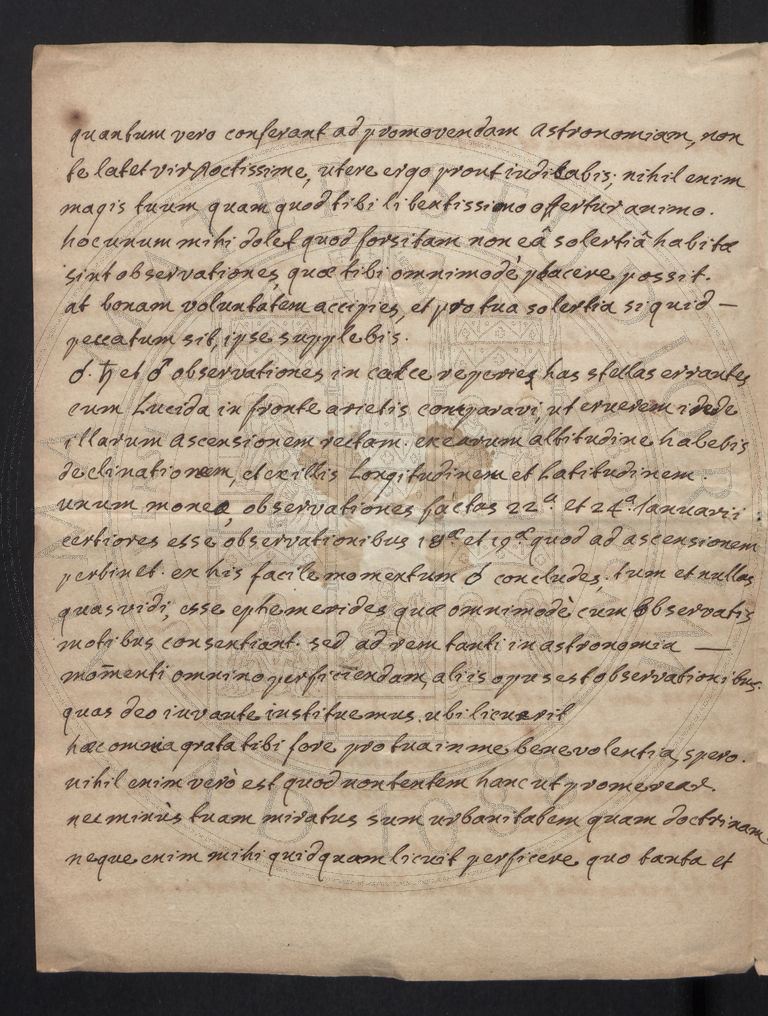 quantum vero conferant ad promovendam astronomiam, non
te latet vir doctissime, utere ergo prout iudicabis; nihil enim
magis tuum quam quod tibi libentissimo offertur animo.
hoc unum mihi dolet quod forsitam non eâ solertiâ habitæ
sint observationes, quæ tibi omnimodè placere possit.
at bonam voluntatem accipies, et pro tua solertia si quid —
peccatum sit, ipse supplebis.
☌. ♄ et ♂ observationes in calce reperies, has stellas errantes
cum Lucida in fronte arietis comparavi, ut eruerem idede
illarum ascensionem rectam. ex earum altitudine habebis
declinationem, et ex illis Longitudinem et Latitudinem.
unum moneo, observationes factas 22ª. et 24ª. Ianuarii
certiores esse observationibus 18ª. et 19ª. quod ad ascensionem
pertinet. ex his facile momentum ☌ concludes, tum et nullas
quas vidi, esse ephemerides quæ omnimodè cum observatis
motibus consentiant. sed ad rem tanti in astronomia —
momenti omnino perficiendam, aliis opus est observationibus.
quas deo iuvante instituemus, ubi licuerit
hæc omnia grata tibi fore pro tua in me benevolentia spero.
nihil enim verò est quod non tentem hanc ut promerear.
nec minùs tuam miratus sum urbanitatem quam doctrinam.
neque enim mihi quidquam licuit perficere quo tanta et